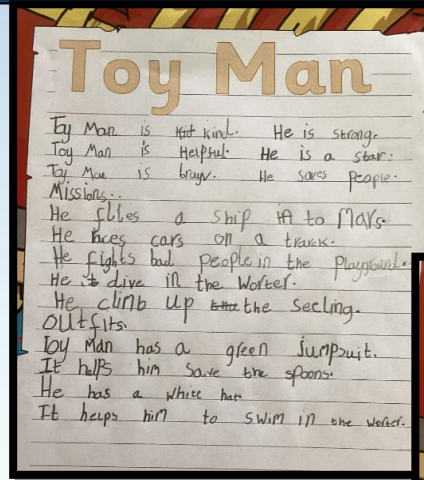 Toy Man
Toy Man is kind. He is strong.
Toy Man is Helpful. He is a star.
Toy Man is brayv. He saves People.
Missions..
He flies a ship to Mars.
He races cars on a track.
He fights bad people in the playground.
He is dive in the Worter.
He climb up the seeling.
outfits.
Toy Man has a green jumpsuit.
It helps him save the spoons.
He has a white hat.
It helps him to swim in the worter.